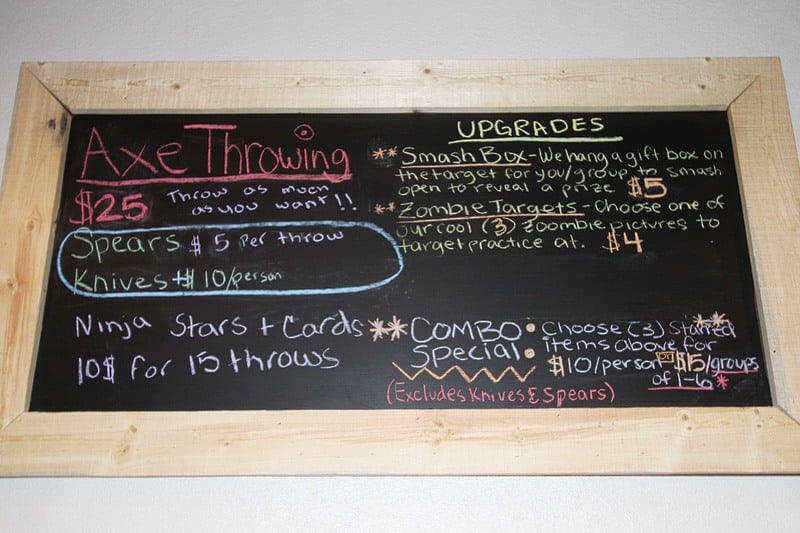 Axe Throwing
$25 Throw as much
as you want!!
Spears $5 per throw
Knives +$10/person
Ninja Stars + Cards
10$ for 15 throws
UPGRADES
** Smash Box - We hang a gift box on
the target for you/group to smash
open to reveal a prize $5
** Zombie Targets - Choose one of
our cool (3) zoombie pictures to
target practice at. $4
** COMBO Special:
Choose (3) starred **
items above for
$10/person or $15/groups
of 1-6 *
(Excludes Knives & Spears)